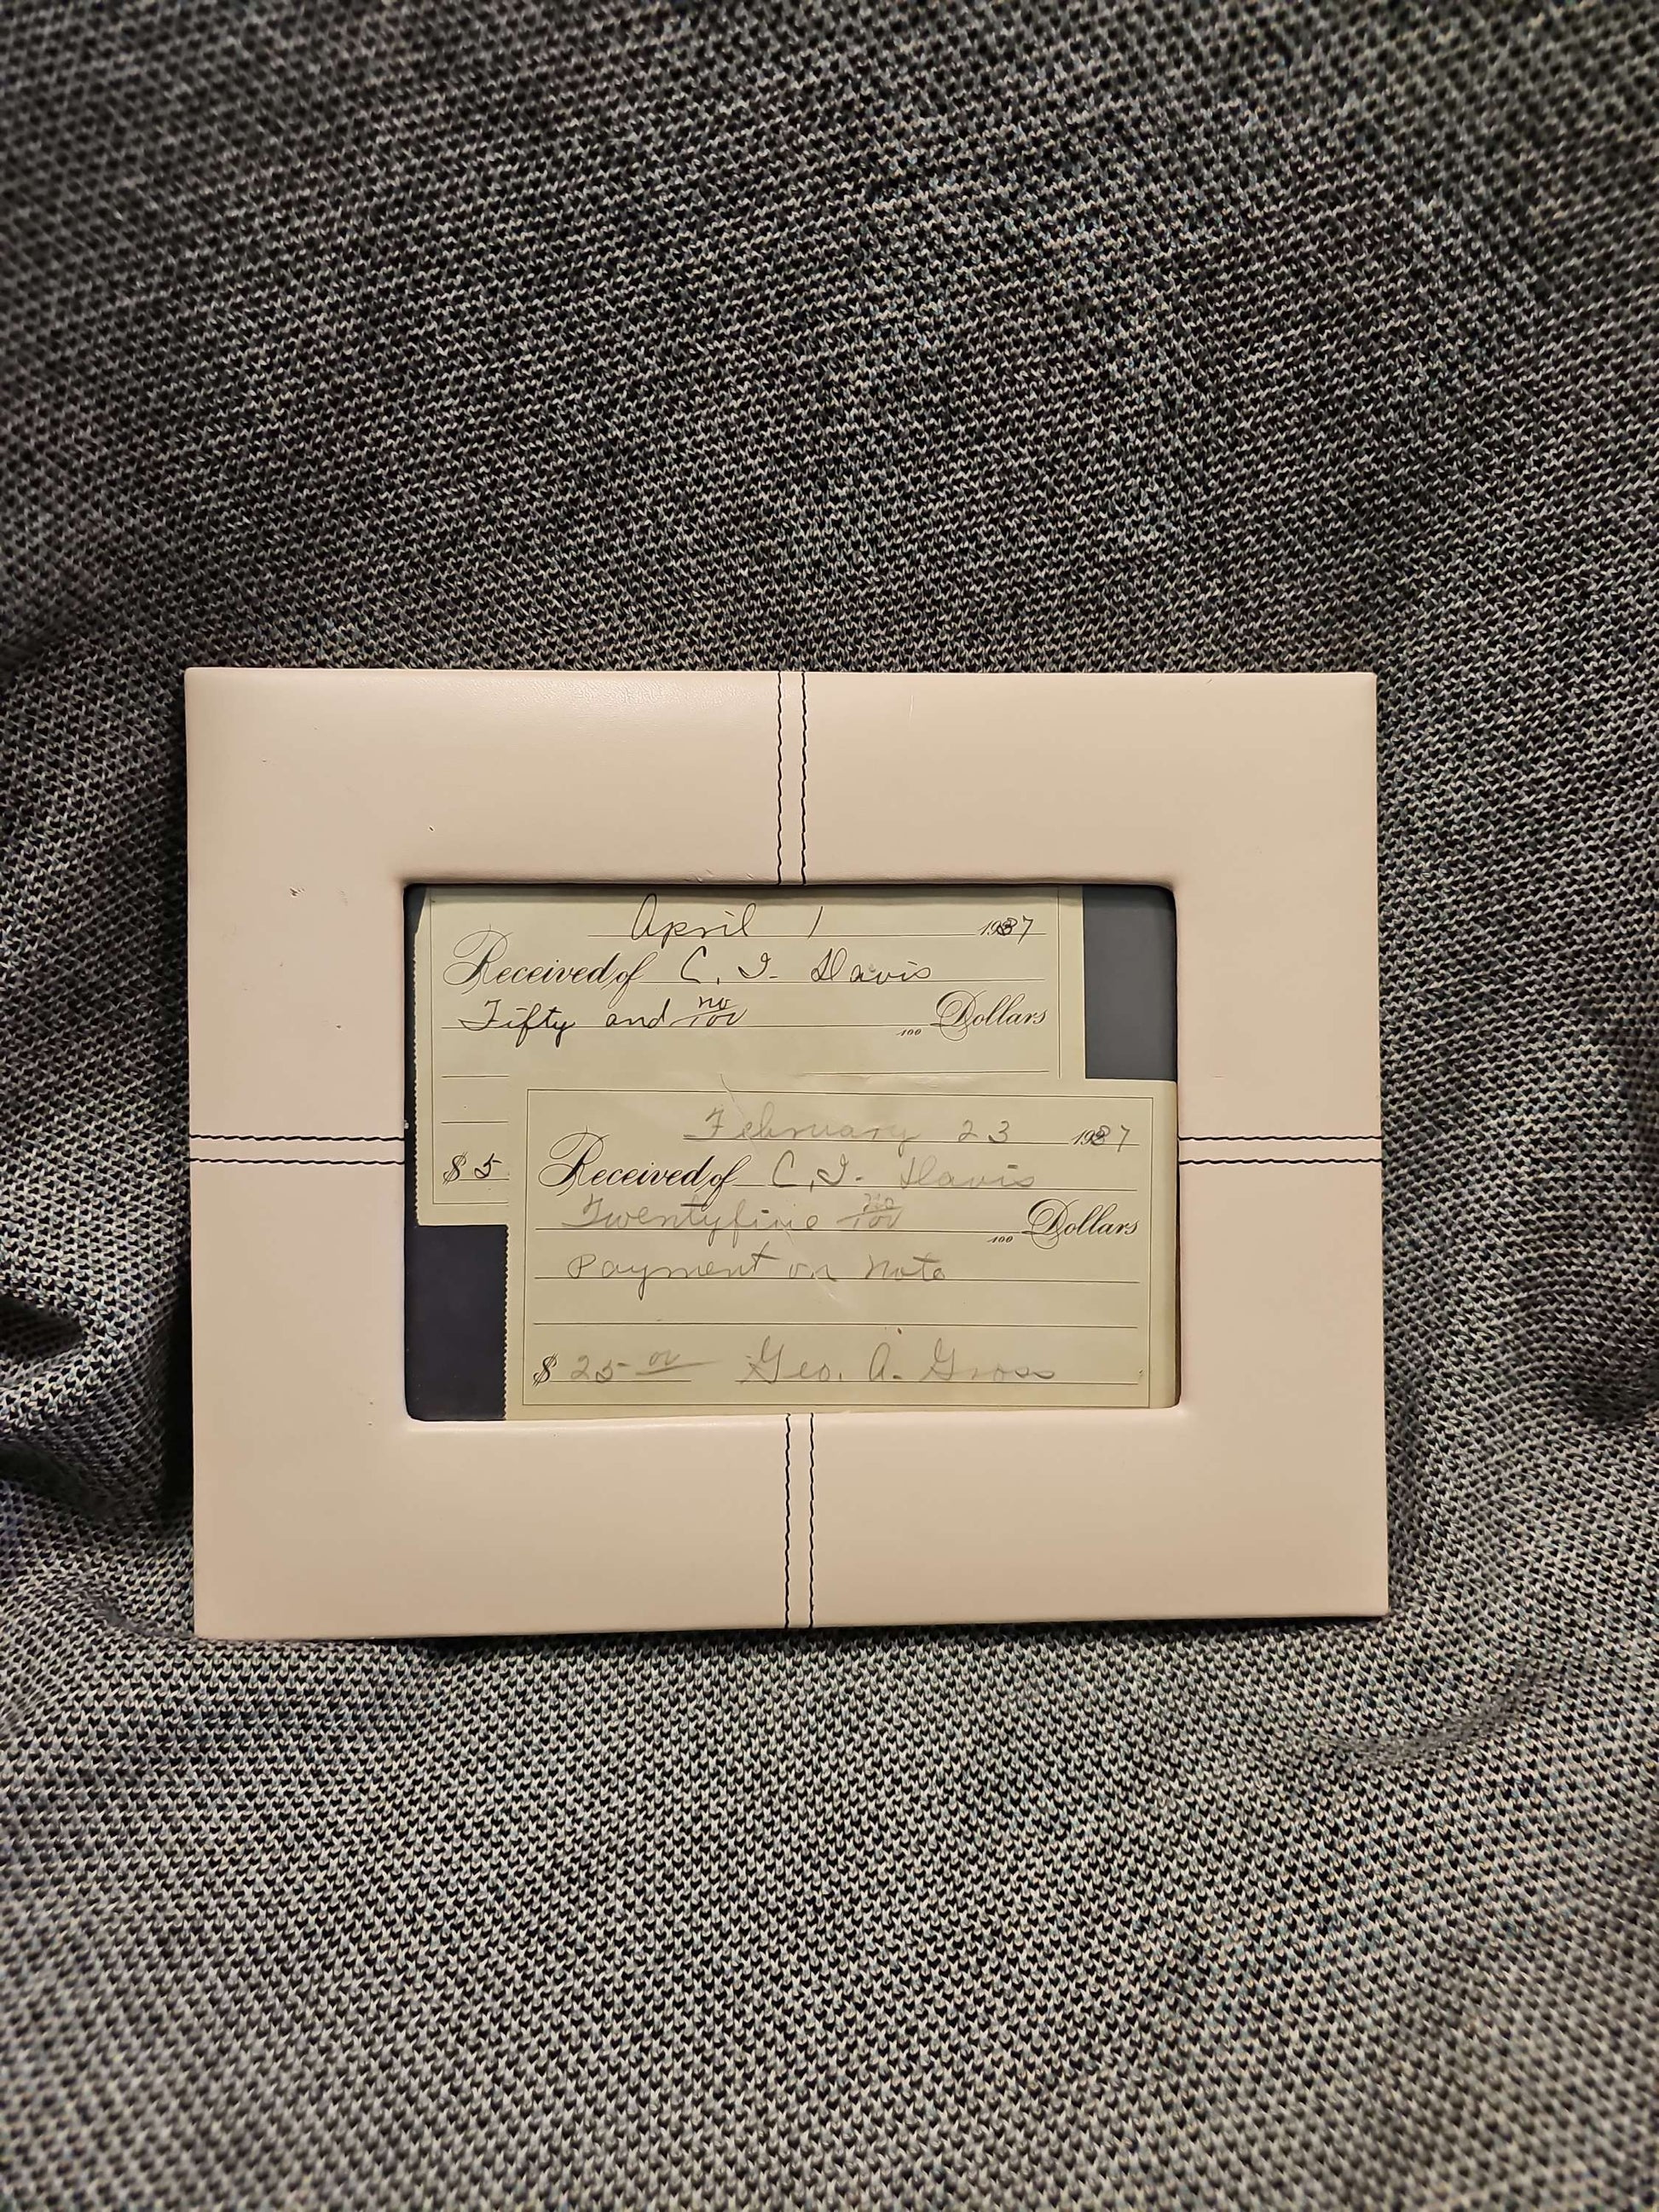 April 1 1937
Received of C. I. Davis
Fifty and no/100 /100 Dollars
$ 5
February 23 1937
Received of C. I. Davis
Twentyfive no/100 /100 Dollars
Payment on note
$ 25 00 Geo. A. Gross